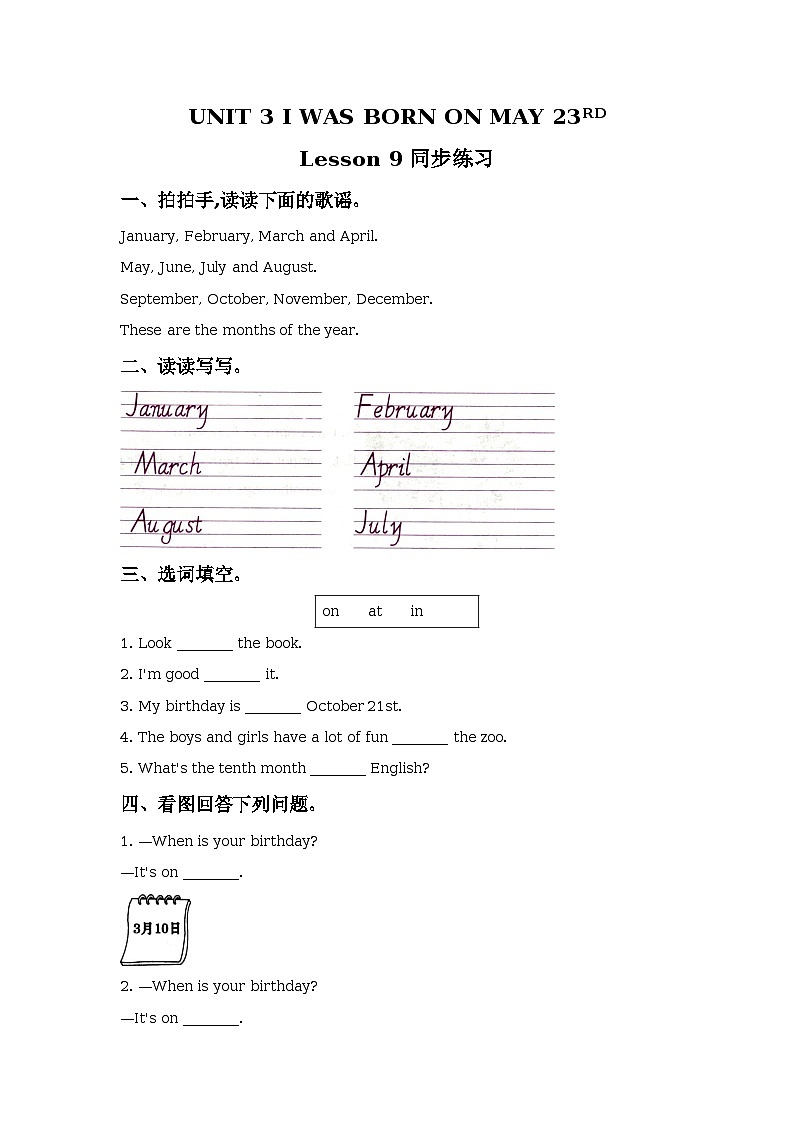 UNIT 3 I WAS BORN ON MAY 23RD
Lesson 9 同步练习
一、拍拍手,读读下面的歌谣。
January, February, March and April.
May, June, July and August.
September, October, November, December.
These are the months of the year.
二、读读写写。
January February
March April
August July
三、选词填空。
on at in
1. Look _______ the book.
2. I'm good _______ it.
3. My birthday is _______ October 21st.
4. The boys and girls have a lot of fun _______ the zoo.
5. What's the tenth month _______ English?
四、看图回答下列问题。
1. —When is your birthday?
—It's on _______.
3月10日
2. —When is your birthday?
—It's on _______.